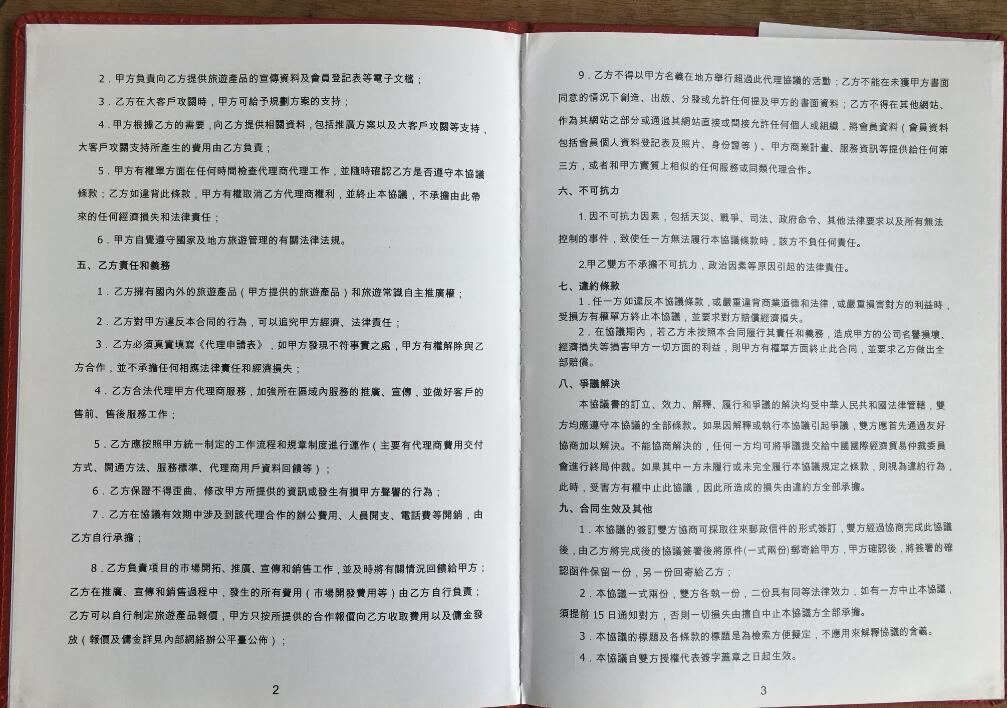 2．甲方負責向乙方提供旅遊產品的宣傳資料及會員登記表等電子文檔；
3．乙方在大客戶攻關時，甲方可給予規劃方案的支持；
4．甲方根據乙方的需要，向乙方提供相關資料，包括推廣方案以及大客戶攻關等支持，
大客戶攻關支持所產生的費用由乙方負責；
5．甲方有權單方面在任何時間檢查代理商代理工作，並隨時確認乙方是否遵守本協議
條款；乙方如違背此條款，甲方有權取消乙方代理商權利，並終止本協議，不承擔由此帶
來的任何經濟損失和法律責任；
6．甲方自覺遵守國家及地方旅遊管理的有關法律法規。
五、乙方責任和義務
1．乙方擁有國內外的旅遊產品（甲方提供的旅遊產品）和旅遊常識自主推廣權；
2．乙方對甲方違反本合同的行為，可以追究甲方經濟、法律責任；
3．乙方必須真實填寫《代理申請表》，如甲方發現不符事實之處，甲方有權解除與乙
方合作，並不承擔任何相應法律責任和經濟損失；
4．乙方合法代理甲方代理商服務，加強所在區域內服務的推廣、宣傳，並做好客戶的
售前、售後服務工作；
5．乙方應按照甲方統一制定的工作流程和規章制度進行運作（主要有代理商費用交付
方式、開通方法、服務標準、代理商用戶資料回饋等）；
6．乙方保證不得歪曲、修改甲方所提供的資訊或發生有損甲方聲譽的行為；
7．乙方在協議有效期中涉及到該代理合作的辦公費用、人員開支、電話費等開銷，由
乙方自行承擔；
8．乙方負責項目的市場開拓、推廣、宣傳和銷售工作，並及時將有關情況回饋給甲方；
乙方在推廣、宣傳和銷售過程中，發生的所有費用（市場開發費用等）由乙方自行負責；
乙方可以自行制定旅遊產品報價，甲方只按所提供的合作報價向乙方收取費用以及傭金發
放（報價及傭金詳見內部網絡辦公平臺公佈）；
2
9．乙方不得以甲方名義在地方舉行超過此代理協議的活動；乙方不能在未獲甲方書面
同意的情況下創造、出版、分發或允許任何提及甲方的書面資料；乙方不得在其他網站、
作為其網站之部分或通過其網站直接或間接允許任何個人或組織，將會員資料（會員資料
包括會員個人資料登記表及照片、身份證等）、甲方商業計畫、服務資訊等提供給任何第
三方，或者和甲方實質上相似的任何服務或同類代理合作。
六、不可抗力
1.因不可抗力因素，包括天災、戰爭、司法、政府命令、其他法律要求以及所有無法
控制的事件，致使任一方無法履行本協議條款時，該方不負任何責任。
2.甲乙雙方不承擔不可抗力，政治因素等原因引起的法律責任。
七、違約條款
1．任一方如違反本協議條款，或嚴重違背商業道德和法律，或嚴重損害對方的利益時，
受損方有權單方終止本協議，並要求對方賠償經濟損失。
2．在協議期內，若乙方未按照本合同履行其責任和義務，造成甲方的公司名譽損壞、
經濟損失等損害甲方一切方面的利益，則甲方有權單方面終止此合同，並要求乙方做出全
部賠償。
八、爭議解決
本協議書的訂立、效力、解釋、履行和爭議的解決均受中華人民共和國法律管轄，雙
方均應遵守本協議的全部條款。如果因解釋或執行本協議引起爭議，雙方應首先通過友好
協商加以解決。不能協商解決的，任何一方均可將爭議提交給中國國際經濟貿易仲裁委員
會進行終局仲裁。如果其中一方未履行或未完全履行本協議規定之條款，則視為違約行為，
此時，受害方有權中止此協議，因此所造成的損失由違約方全部承擔。
九、合同生效及其他
1．本協議的簽訂雙方協商可採取往來郵政信件的形式簽訂，雙方經過協商完成此協議
後，由乙方將完成後的協議簽署後將原件(一式兩份)郵寄給甲方，甲方確認後，將簽署的確
認函件保留一份，另一份回寄給乙方；
2．本協議一式兩份，雙方各執一份，二份具有同等法律效力，如有一方中止本協議，
須提前 15 日通知對方，否則一切損失由擅自中止本協議方全部承擔。
3．本協議的標題及各條款的標題是為檢索方便擬定，不應用來解釋協議的含義。
4．本協議自雙方授權代表簽字蓋章之日起生效。
3